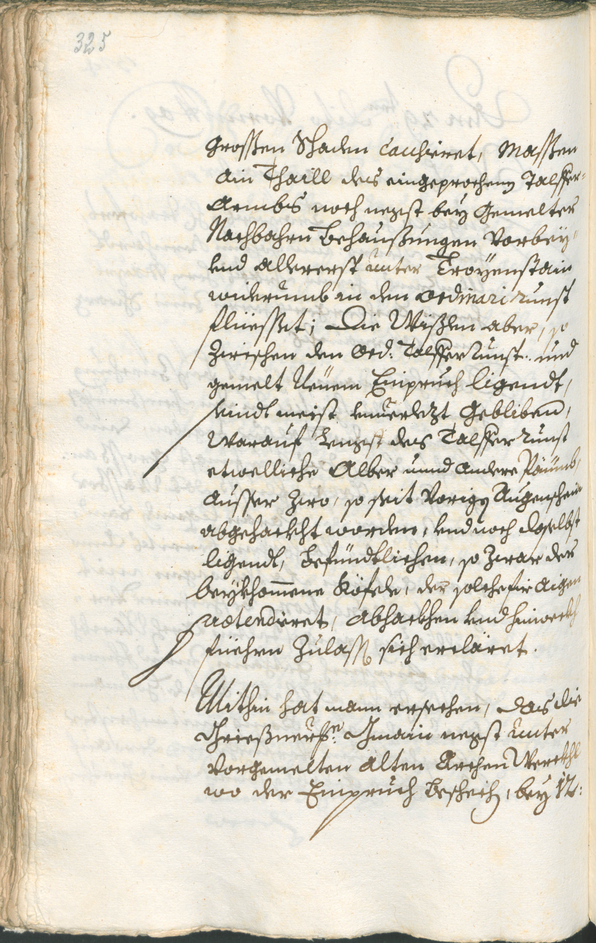 325
großen Schaden causieret, Massen
Ain Thaill des eingeprochenen Talfer-
Armbs noch negst bey gemelten
Nachbahrn Behaußungen Vorbey-
und allererst unter Troyenstain
widerumb in den Ordinari runst
fliesset; Die Wißen aber, so
Zwischen den Ord: Talfer runst und
gemelt Neuem Einpruch ligendt,
sindt meist unverlezt gebliben,
Warauf negst des Talfer runst
etwelliche Alber unnd andere Päumb,
ausser zwo, so seit Vorigen Augenschein
abgehackht worden, und noch daselbst
ligendt, befündtlichen, so zwar der
beykhommene Köfele, der solche für aigen
praetendiret, abhackhen und hinweckh
füehren Zulassen sich erclaret.
Mithin hat mann ersechen, das die
Griesnerische Gmain negst unter
Vorgemelten alten Archen Werckh
wo der Einpruch beschech, bey 170: